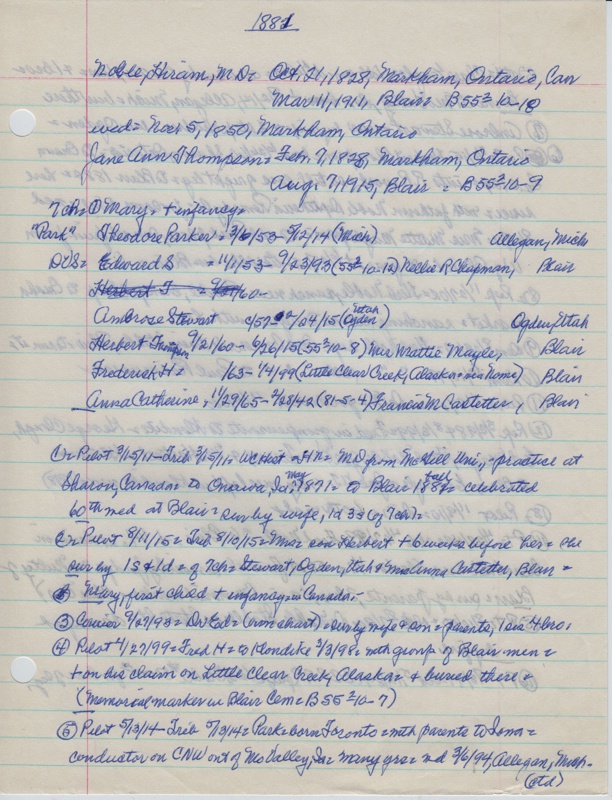 1881
Noble, Hiram, M.D= Oct. 21, 1828, Markham, Ontario, Can
Mar 11, 1911, Blair= B 55² 10-
wed= Nov 5, 1850, Markham, Ontario
Jane Ann Thompson= Feb. 7, 1828, Markham, Ontario
Aug. 7, 1915, Blair = B 55² 10-9
7 ch= ① Mary = + infancy=
"Park" Theodore Parker = 3/6/53 - 5/12/14 (Mich) Allegan, Mich
Edward S = 11/1/53 - 9/23/93 (55² 10-12) Nellie R Chapman, Blair
Herbert T = 9/21/60 -
Ambrose Stewart c/57 /04/15 (Utah Ogden) Ogden, Utah
Herbert Thompson 9/21/60 - 6/26/15 (55² 10-8) Mrs Mattie Mayle, Blair
Frederick H = /63 - 1/4/99 (Little Clear Creek, Alaska = via Nome) Blair
Anna Catherine, 11/29/65 - 2/28/42 (81-5-4) Francis M Castetter, Blair
Pilot 3/15/11 - Trib 3/15/11 = = MD from McGill Uni, - practice at
Sharon, Canada = to Onawa, Ia, May 1871 = to Blair 1882 = celebrated
60th wed at Blair = sur by wife, 1d 3s (of 7 ch) =
Pilot 8/11/15 = Trib 8/10/15 = Mrs = son Herbert + 6 weeks before her = she
sur by 1 S & 1 d = of 7 ch = Stewart, Ogden, Utah & Mrs Anna Castetter, Blair =
② Mary, first child + infancy = in Canada, -
③ Courier 9/27/93 = Dr Ed = (own chart) = sur by wife & son = parents, 1 sis 4 bro =
④ Pilot 4/27/99 = Fred H = to Klondike 3/3/98 = with group of Blair men =
+ on his claim on Little Clear Creek, Alaska = & buried there =
(Memorial marker in Blair Cem = B 55² 10-7)
⑤ Pilot 5/13/14 - Trib 5/13/14 = Park = born Toronto = with parents to Iowa =
conductor on CNW out of Mo Valley, Ia = many yrs = wd 3/6/94, Allegan, Mich -
(ctd)